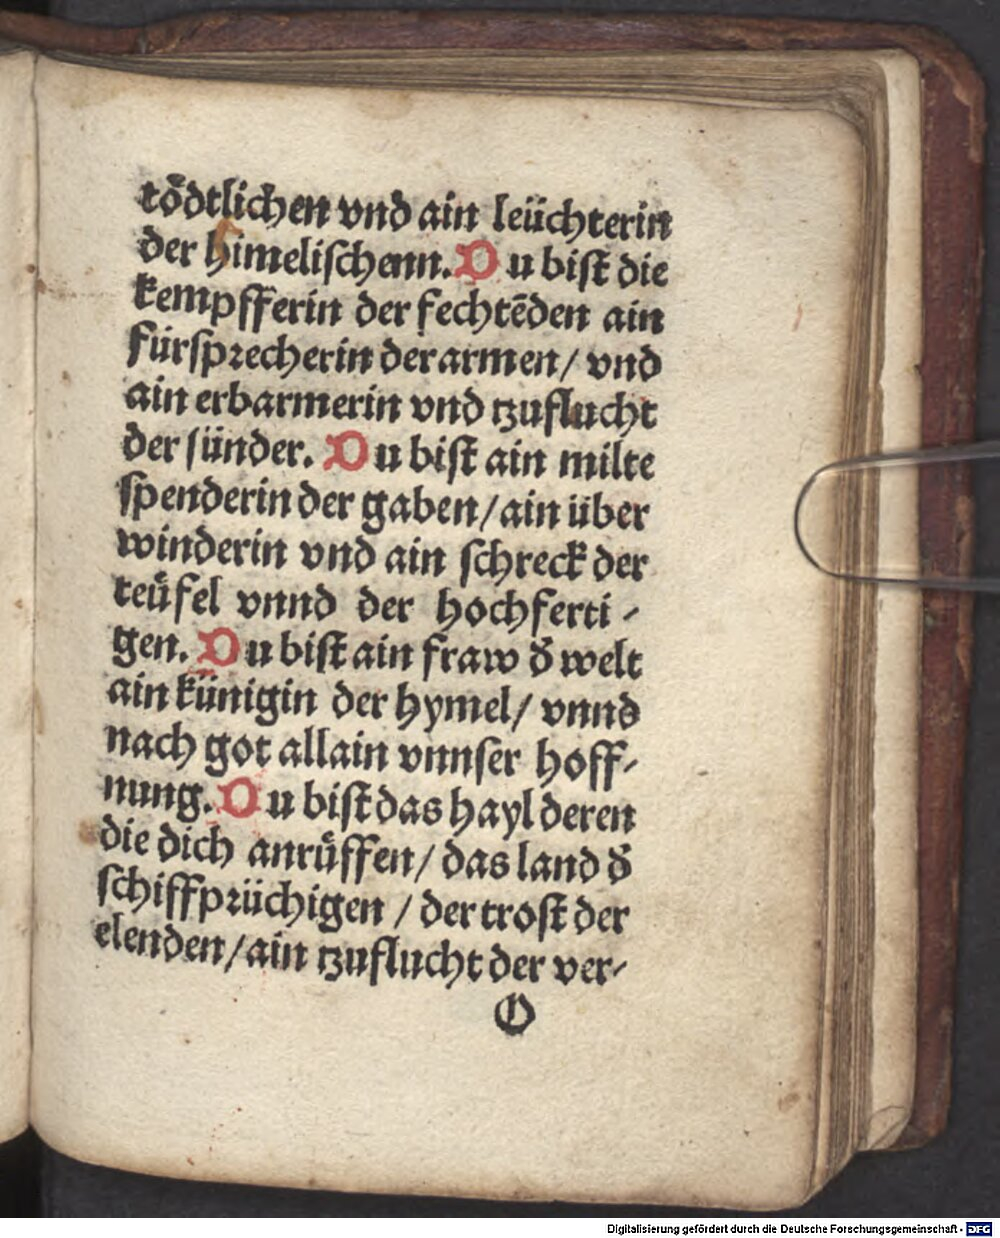 toͤdtlichen vnd ain leüchterin
der himeliſchenn. Du biſt die
kempfferin der fechtēden ain
fürſprecherin der armen/ vnd
ain erbarmerin vnd tzuflucht
der ſünder. Du biſt ain milte
ſpenderin der gaben/ain über
winderin vnd ain ſchreck der
teüfel vnnd der hochferti⸗
gen. Du biſt ain fraw d̕ welt
ain künigin der hymel/ vnnd
nach got allain vnnſer hoff⸗
nung. Du biſt das hayl deren
die dich anruͤffen/ das land d̕
ſchiffprüchigen / der troſt der
elenden/ain tzuflucht der ver⸗
O
Digitalisierung gefördert durch die Deutsche Forschungsgemeinschaft - DFG